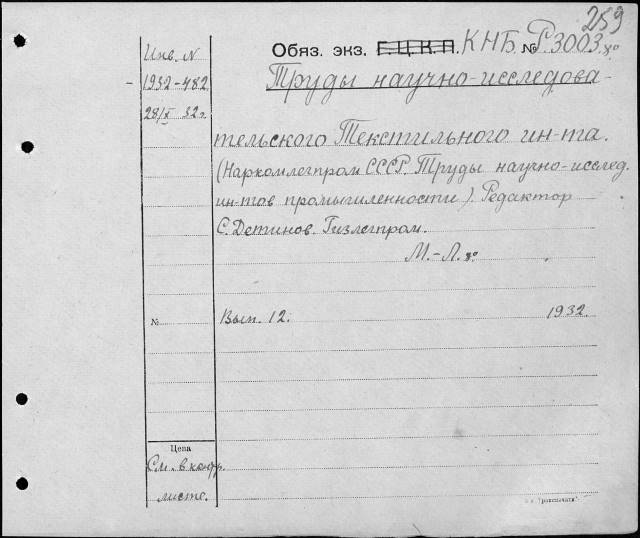 259
Обяз. экз. Г.Ц.К.П. КНБ № Р.3003.8°
Инв. N
1932-482
28/X 32г.
Труды научно-исследова-
тельского Текстильного ин-та.
(Наркомлегпром СССР. Труды научно-исслед.
ин-тов промышленности). Редактор
С. Детинов. Гизлегпром.
М.-Л. 8°
№ Вып. 12. 1932.
Цена
См. в контр.
листе.